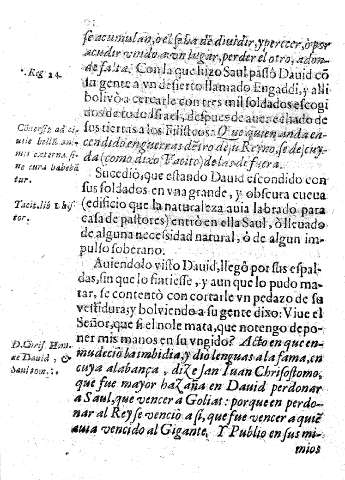 se acumulan, ò el se ha de dividir, y perecer, ò por
acudir unido a vn lugar, perder el otro, adon-
de falta. Con la que hizo Saul passò Dauid cõ
su gente a vn desierto llamado Engaddi, y alli
bolviò a cercarle con tres mil soldados escogi
dos de todo Israel, despues de auer echado de
sus tierras a los Filisteos. Que quien anda en-
cendido en guerras dẽtro de su Reyno, se descuy-
da (como dixo Tacito) de las de fuera.
Sucediò, que estando Dauid escondido con
sus soldados en vna grande, y obscura cueua
(edificio que la naturaleza auia labrado para
casa de pastores) entrò en ella Saul, ò lleuado
de alguna necessidad natural, ò de algun im-
pulso soberano.
Auiendolo visto Dauid, llegò por sus espal-
das, sin que lo sintiesse, y aun que lo pudo ma-
tar, se contentò con cortarle vn pedazo de su
vestidura; y bolviendo a su gente dixo: Viue el
Señor, que si el no le mata, que no tengo de po-
ner mis manos en su vngido? Acto en que en-
mudeciò la imbidia, y diò lenguas a la fama, en
cuya alabança, dize san Iuan Chrisostomo,
que fue mayor hazaña en Dauid perdonar
a Saul, que vencer a Goliat: porque en perdo-
nar al Rey se venciò a si, que fue vencer a quiẽ
auia vencido al Gigante. Y Publio en sus mi-
mios
1. Reg. 24.
Conuersis ad ci-
uile bellũ ani-
mis externa si-
ne cura habebã
tur.
Tacit. lib. 1 his
tor.
D. Chris. Hom.
de Dauid, &
Saul tom.